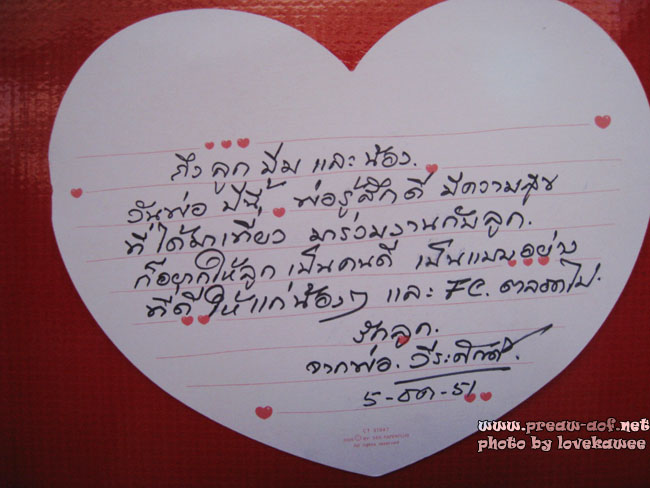 ถึง ลูก ปุ้ม และ น้อง.
วันพ่อ ปีนี้ พ่อรู้สึกดี มีความสุข
ที่ได้มาเที่ยว มาร่วมงานกับลูก.
ก็อยากให้ลูก เป็นคนดี เป็นแบบอย่าง
ที่ดี ให้แก่น้องๆ และ FC. ตลอดไป.
รักลูก.
จากพ่อ. วีระศักดิ์.
5-ธค-51
www.preaw-aof.net
photo by lovekawee